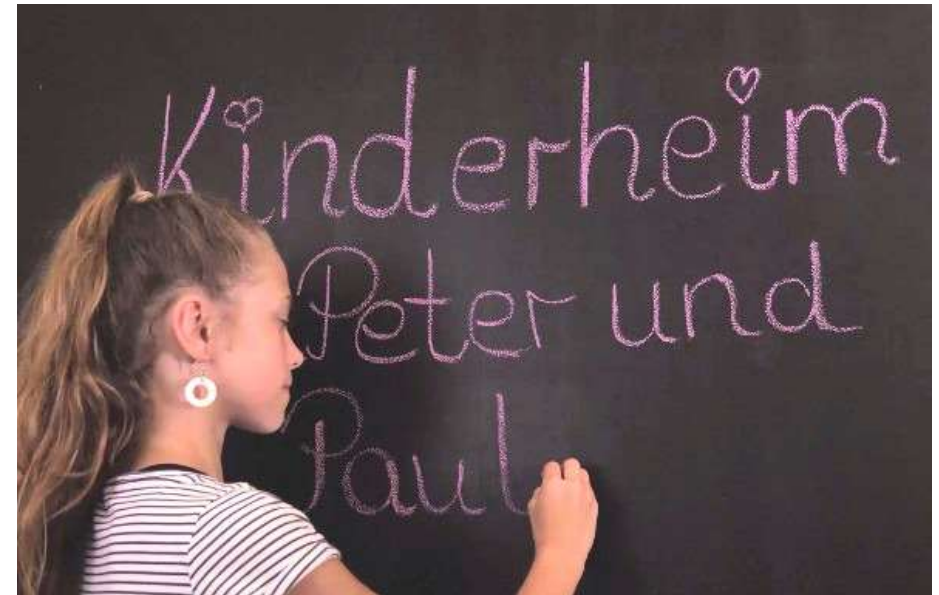 Kinderheim
Peter und
Paul